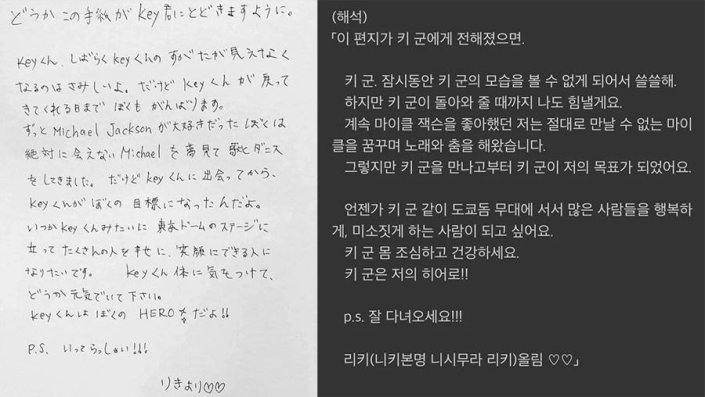 どうかこの手紙がKey君にとどきますように。
Keyくん、しばらくKeyくんのすがたが見えなく
なるのはさみしいよ。だけどKeyくんが戻って
きてくれる日までぼくもがんばります。
ずっとMichael Jacksonが大好きだったぼくは
絶対に会えないMichaelを夢見て歌とダンス
をしてきました。だけどKeyくんに出会ってから、
Keyくんがぼくの目標になったんだよ。
いつかKeyくんみたいに東京ドームのステージに
立ってたくさんの人を幸せに、笑顔にできる人に
なりたいです。 Keyくん体に気をつけて、
どうか元気でいて下さい。
KeyくんはぼくのHEROだよ!!
P.S. いってらっしゃい!!!
りきより♡♡
(해석)
「이 편지가 키 군에게 전해졌으면.
키 군. 잠시동안 키 군의 모습을 볼 수 없게 되어서 쓸쓸해.
하지만 키 군이 돌아와 줄 때까지 나도 힘낼게요.
계속 마이클 잭슨을 좋아했던 저는 절대로 만날 수 없는 마이
클을 꿈꾸며 노래와 춤을 해왔습니다.
그렇지만 키 군을 만나고부터 키 군이 저의 목표가 되었어요.
언젠가 키 군 같이 도쿄돔 무대에 서서 많은 사람들을 행복하
게, 미소짓게 하는 사람이 되고 싶어요.
키 군 몸 조심하고 건강하세요.
키 군은 저의 히어로!!
p.s. 잘 다녀오세요!!!
리키(니키본명 니시무라 리키)올림 ♡♡」